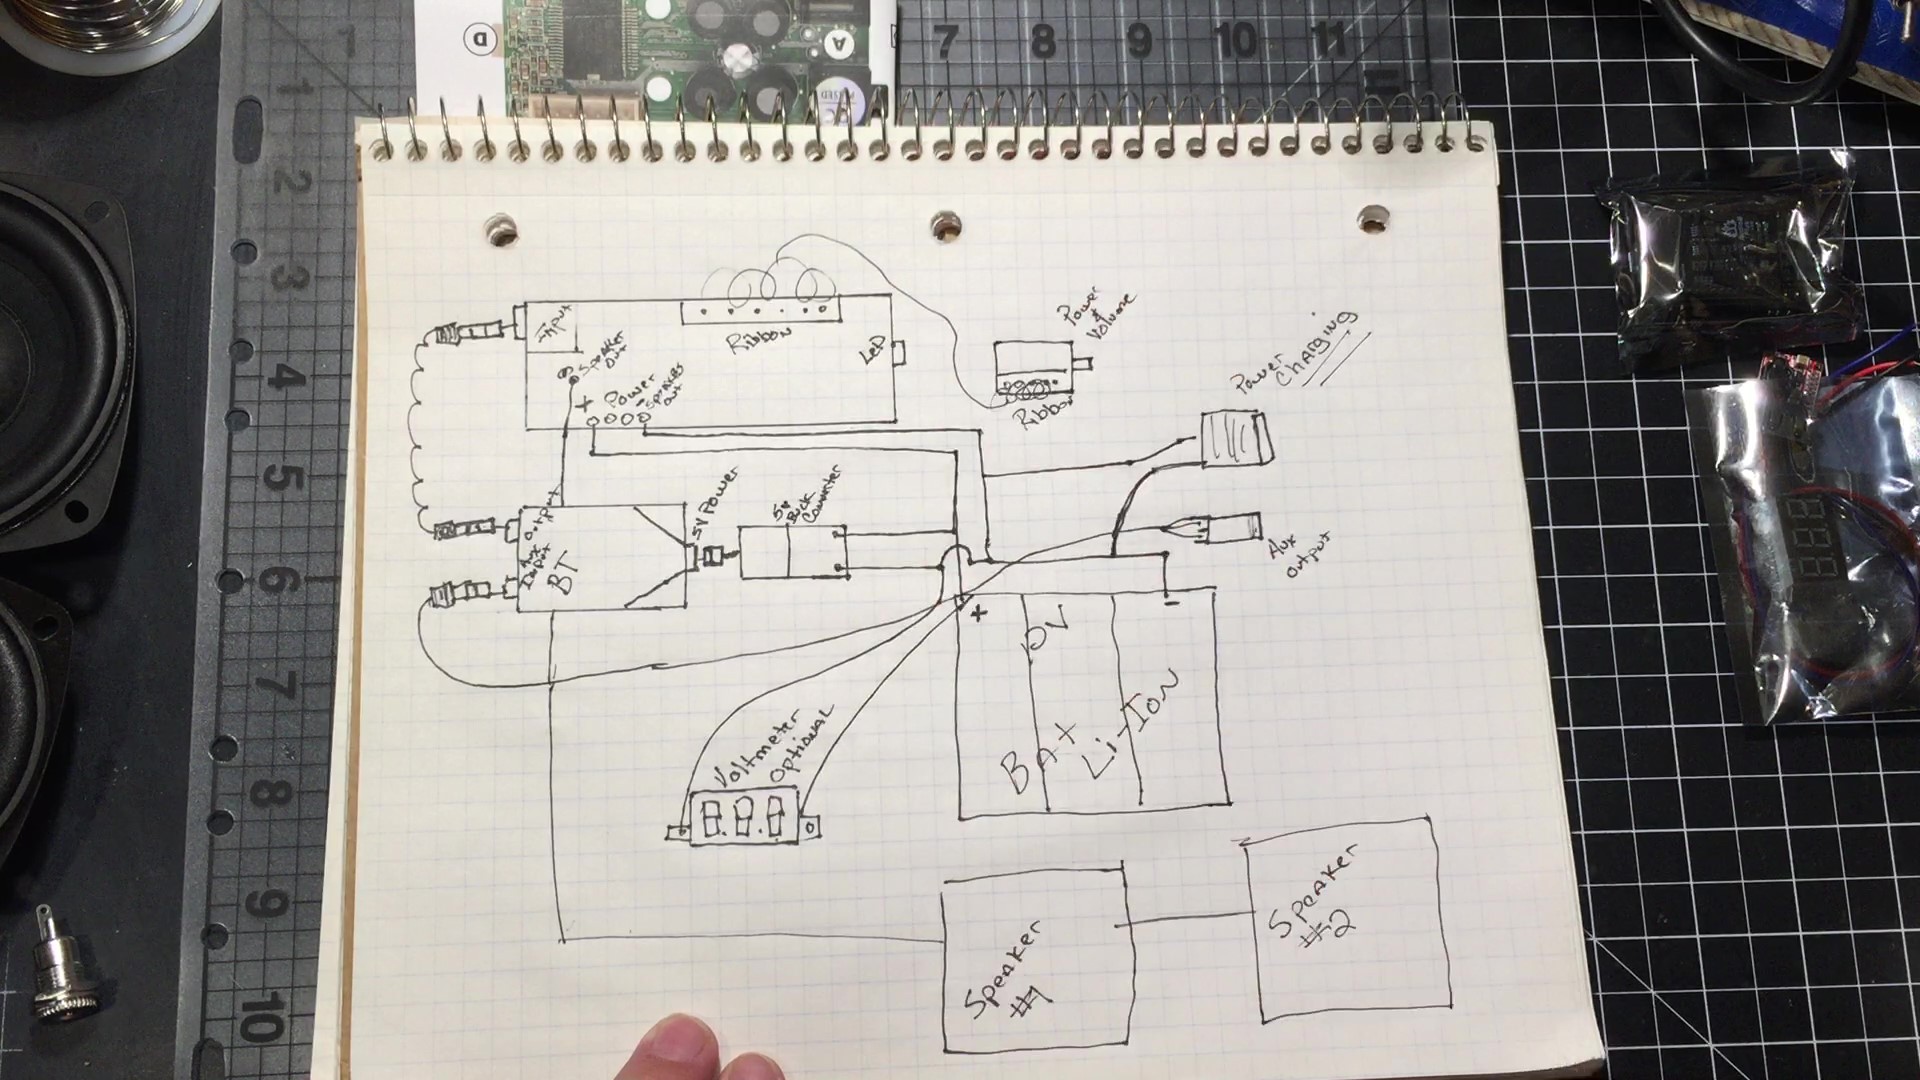 D
A
7 8 9 10 11
1
2
3
4
5
6
7
8
9
10
Input
Speaker
out
Ribbon
LED
+ Power -
Speaker
out
Power
&
Volume
Ribbon
Power
Charging
Output
Aux
Input
BT
5V Power
5v
Buck
Converter
Aux
output
+
-
Voltmeter
Optional
8.8.8
BAT
Li-Ion
Speaker
#1
Speaker
#2